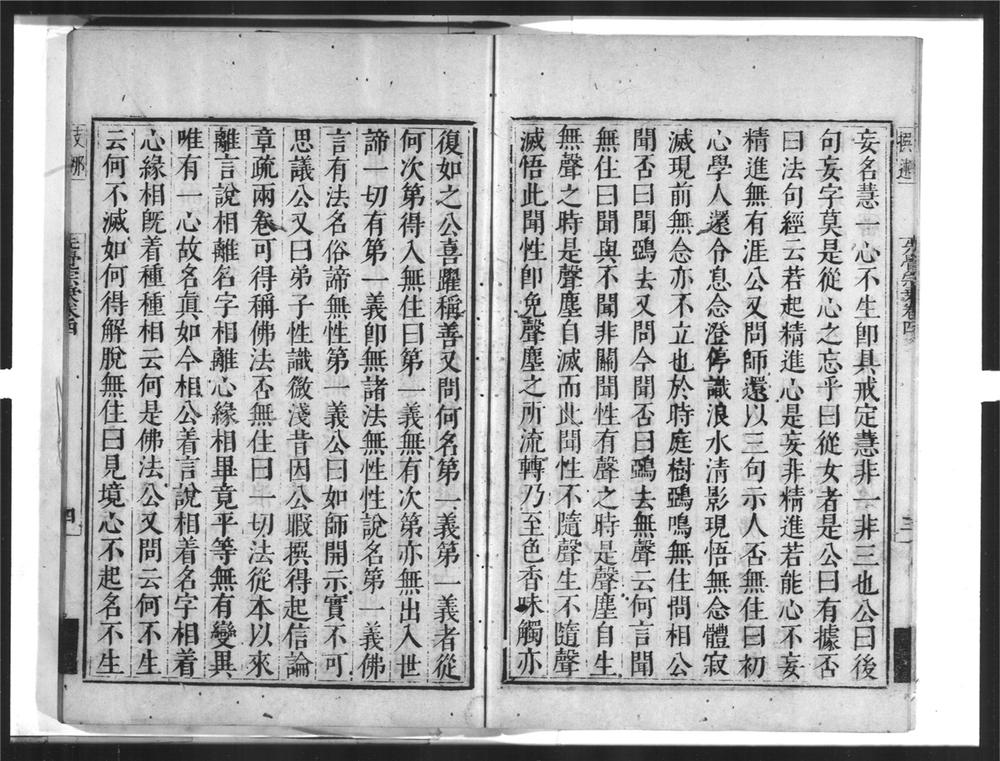 妄名慧一心不生卽具戒定慧非一非三也公曰後
句妄字莫是從心之忘乎曰從女者是公曰有據否
曰法句經云若起精進心是妄非精進若能心不妄
精進無有涯公又問師還以三句示人否無住曰初
心學人還令息念澄停識浪水清影現悟無念體寂
滅現前無念亦不立也於時庭樹鵶鳴無住問相公
聞否曰聞鵶去又問今聞否曰鵶去無聲云何言聞
無住曰聞與不聞非關聞性有聲之時是聲塵自生
無聲之時是聲塵自滅而此聞性不隨聲生不隨聲
滅悟此聞性卽免聲塵之所流轉乃至色香味觸亦
復如之公喜躍稱善又問何名第一義第一義者從
何次第得入無住曰第一義無有次第亦無出入世
諦一切有第一義卽無諸法無性性說名第一義佛
言有法名俗諦無性第一義公曰如師開示實不可
思議公又曰弟子性識微淺昔因公暇撰得起信論
章疏兩卷可得稱佛法否無住曰一切法從本以來
離言說相離名字相離心緣相畢竟平等無有變異
唯有一心故名眞如今相公着言說相着名字相着
心緣相旣着種種相云何是佛法公又問云何不生
云何不滅如何得解脫無住曰見境心不起名不生
四